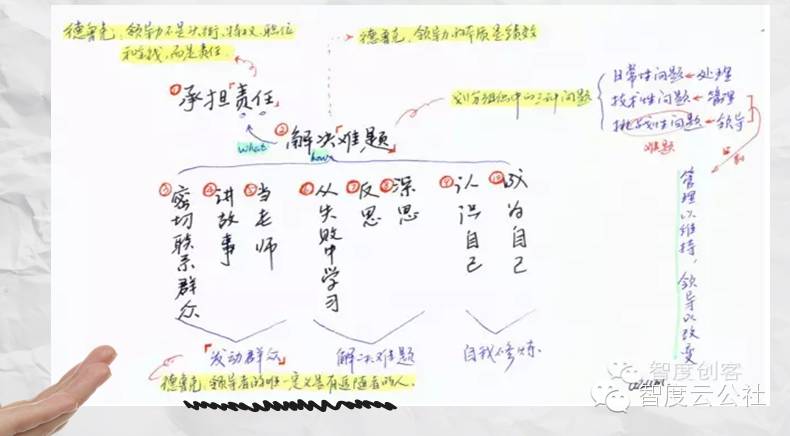 德鲁克:领导力不是头衔、特权、职位
和金钱,而是责任.
德鲁克:领导力的本质是绩效
① 承担「责任」
划分组织中的三种问题
日常性问题←处理
技术性问题←管理
挑战性问题←领导
难题
② 解决「难题」
what
how
③ 密切联系群众
④ 讲故事
⑤ 当老师
⑥ 从失败中学习
⑦ 反思
⑧ 深思
⑨ 认识自己
⑩ 成为自己
管理以维持,领导以改变
「发动群众」
解决难题
自我修炼
德鲁克:领导者的唯一定义是有追随者的人.
智度创客
智度云公社